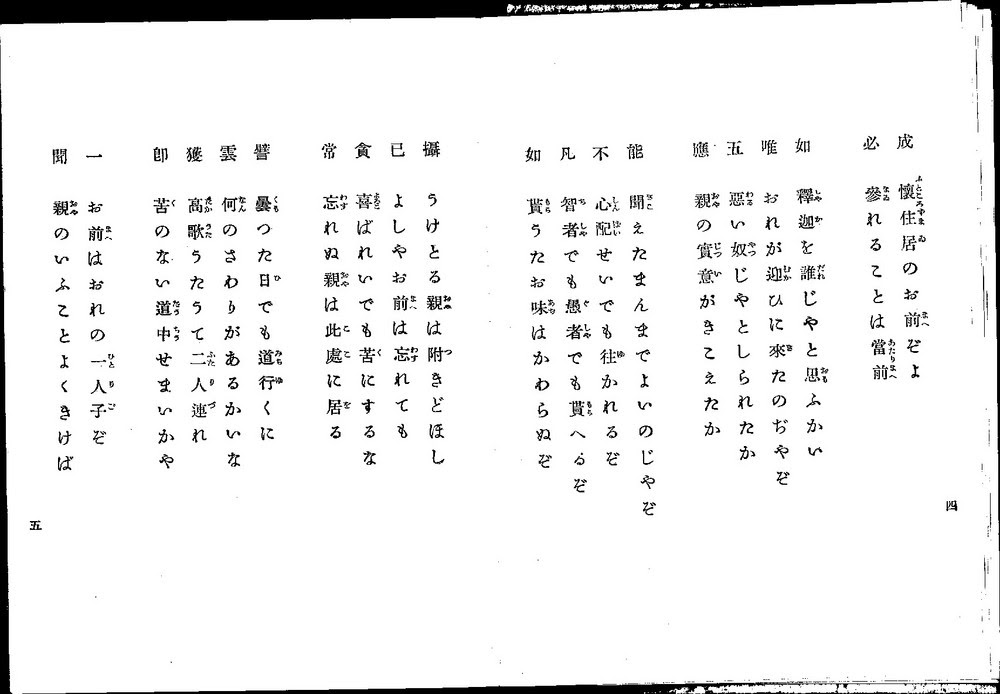 成　懷住居のお前ぞよ
必　參れることは當前
如　釋迦を誰じやと思ふかい
唯　おれが迎ひに來たのぢやぞ
五　惡い奴じやとしられたか
應　親の實意がきこえたか
能　聞えたまんまでよいのじやぞ
不　心配せいでも往かれるぞ
凡　智者でも愚者でも貰へるぞ
如　貰うたお味はかわらぬぞ
四
攝　うけとる親は附きどほし
已　よしやお前は忘れても
貪　喜ばれいでも苦にするな
常　忘れぬ親は此處に居る
譬　曇つた日でも道行くに
雲　何のさわりがあるかいな
獲　高歌うたうて二人連れ
卽　苦のない道中せまいかや
一　お前はおれの一人子ぞ
聞　親のいふことよくきけば
五